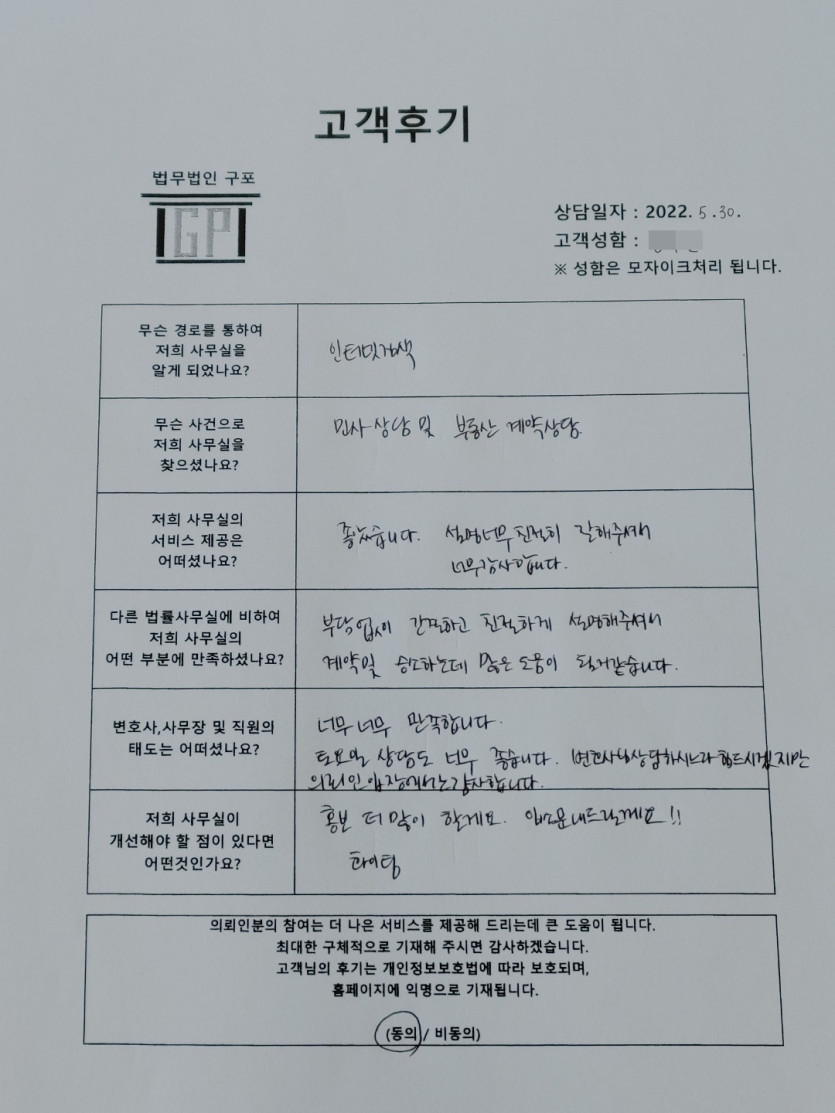 고객후기
법무법인 구포
GP
상담일자 : 2022. 5.30.
고객성함 :
※ 성함은 모자이크처리 됩니다.
무슨 경로를 통하여
저희 사무실을
알게 되었나요?
인터넷검색
무슨 사건으로
저희 사무실을
찾으셨나요?
민사상담 및 부동산 계약상담
저희 사무실의
서비스 제공은
어떠셨나요?
좋았습니다. 설명너무 친절히 잘해주셔서
너무감사합니다.
다른 법률사무실에 비하여
저희 사무실의
어떤 부분에 만족하셨나요?
부담없이 친절하게 설명해주셔서
계약및 승소하는데 많은 도움이 될거같습니다.
변호사,사무장 및 직원의
태도는 어떠셨나요?
너무너무 만족합니다.
토요일 상담도 너무 좋습니다. 변호사님상담하시느라 힘드시겠지만
의뢰인입장에서는감사합니다.
저희 사무실이
개선해야 할 점이 있다면
어떤것인가요?
홍보 더 많이 할게요. 입소문내드릴게요!!
화이팅
의뢰인분의 참여는 더 나은 서비스를 제공해 드리는데 큰 도움이 됩니다.
최대한 구체적으로 기재해 주시면 감사하겠습니다.
고객님의 후기는 개인정보보호법에 따라 보호되며,
홈페이지에 익명으로 기재됩니다.
(동의 / 비동의)